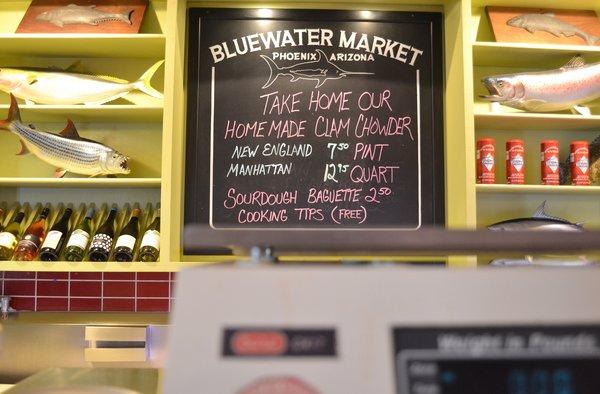 BLUEWATER MARKET
PHOENIX ARIZONA
TAKE HOME OUR
HOMEMADE CLAM CHOWDER
NEW ENGLAND 7.50 PINT
MANHATTAN 12.95 QUART
SOURDOUGH BAGUETTE 2.50
COOKING TIPS (FREE)
Weight in Pounds